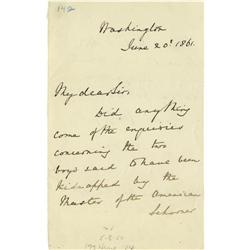 142
Washington
June 20th 1861.
My dear Sir,
Did anything
come of the enquiries
concerning the two
boys said to have been
kidnapped by the
Master of the American
Schooner